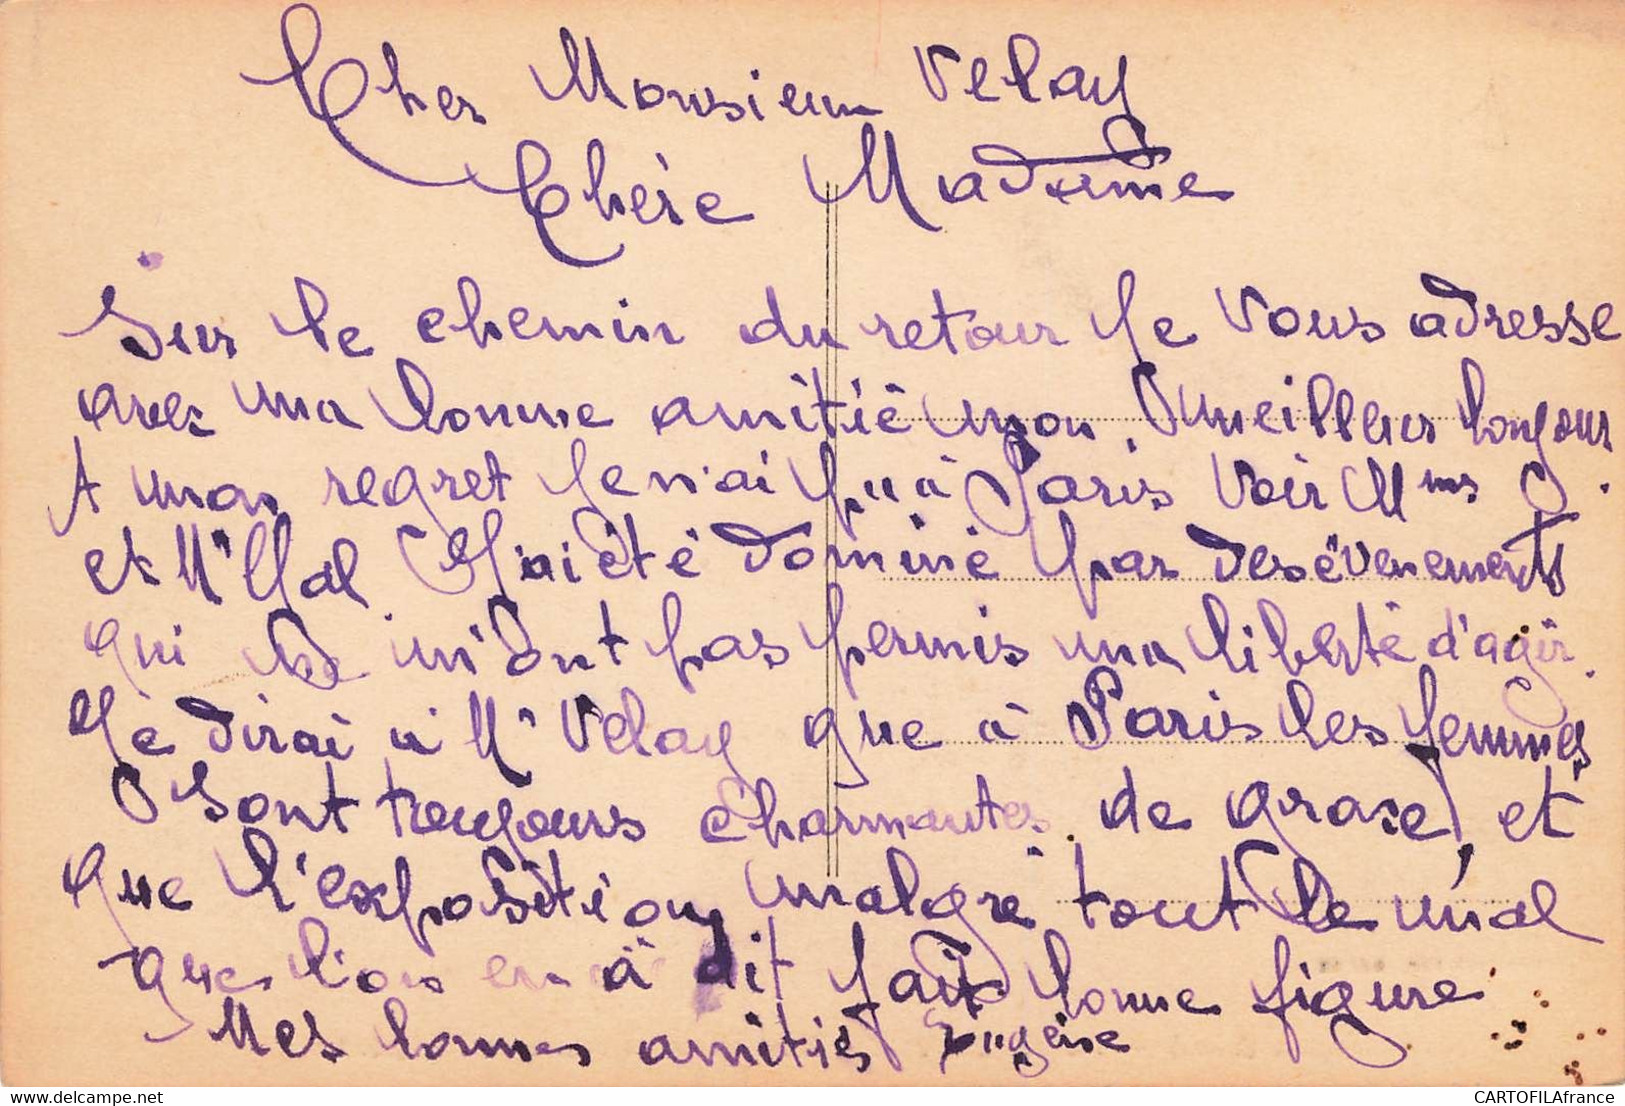 Cher Monsieur Velay
Chère Madame
Sur le chemin du retour Je vous adresse
avec ma bonne amitié mon meilleur bonjour
A mon regret Je n'ai pu à Paris voir Mms
et Mr Gal J'ai été dominé par des évenements
qui ne m'ont pas permis ma liberté d'agir.
Je dirai à Mr Velay que à Paris les femmes
sont toujours charmantes de grase, et
que l'exposition malgré tout le mal
que l'on en à dit fait bonne figure
Mes bonnes amitiés
www.delcampe.net
CARTOFILAfrance